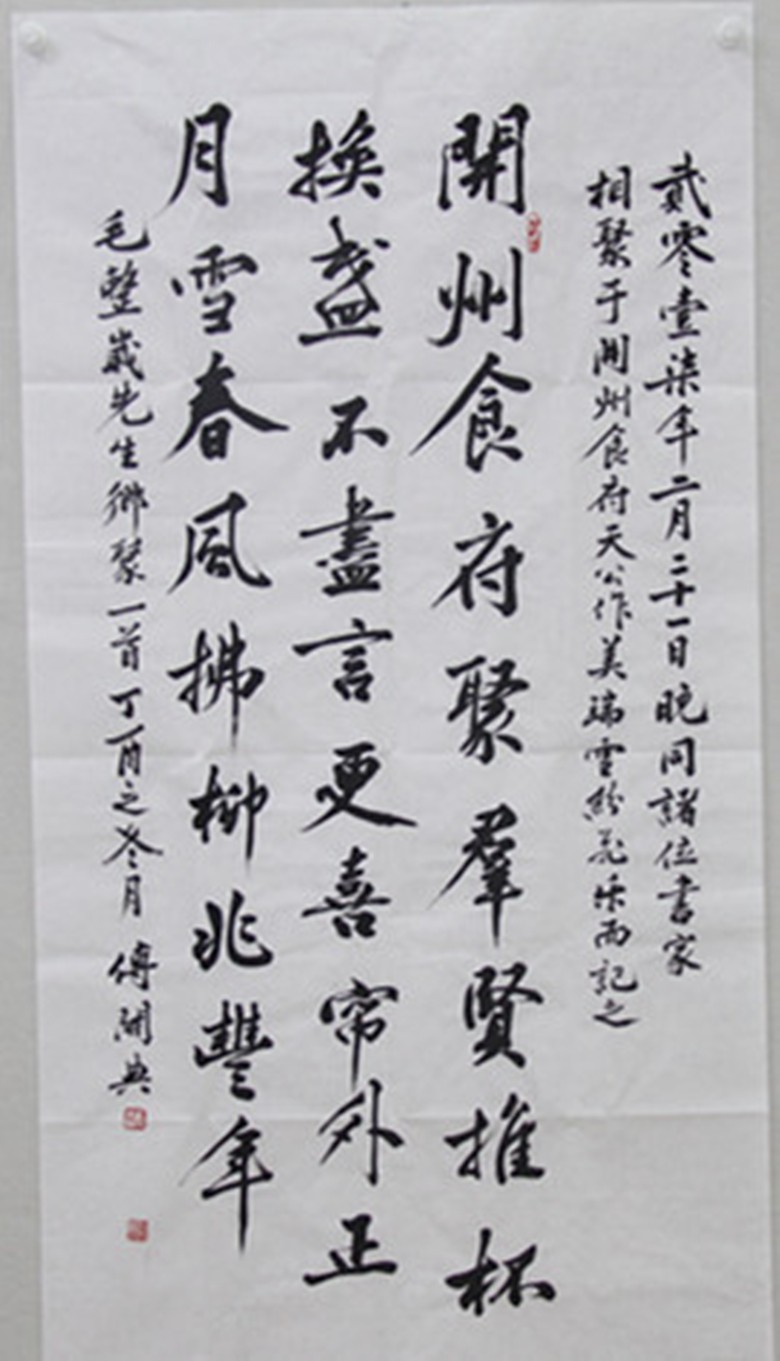 貳零壹柒年二月二十一日晚同諸位書家
相聚于開州食府天公作美瑞雪紛飞乐而記之
開州食府聚羣賢推杯
換盏不盡言更喜帘外正
月雪春风拂柳兆豐年
毛整歲先生鄉聚一首丁酉之冬月傅開典